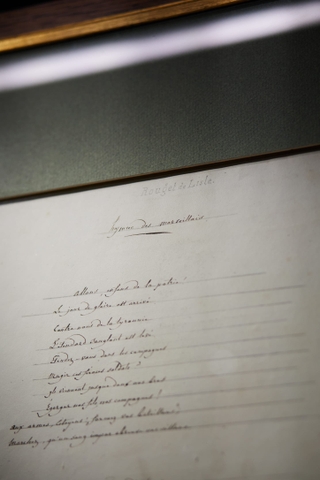 Rouget de Lisle.
hymne des marseillais
allons, enfans de la patrie!
Le jour de gloire est arrivé
Contre nous de la tyrannie
L'étendard sanglant est levé
Entendez-vous dans les campagnes
Mugir ces féroces soldats?
Ils viennent jusque dans nos bras
Égorger nos fils, nos compagnes!
aux armes, Citoyens! formez vos bataillons!
marchez, qu'un sang impur abreuve nos sillons.